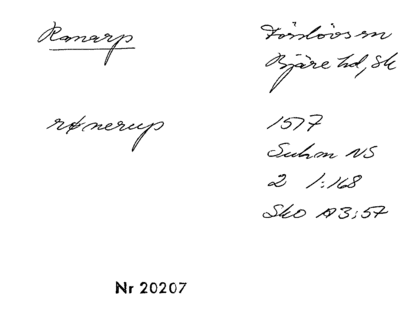 Ranarp
Förslövs sn
Bjäre hd, Sk
rånerup
1517
Suhm NS
2 1:168
Sko A3:57
Nr 20207